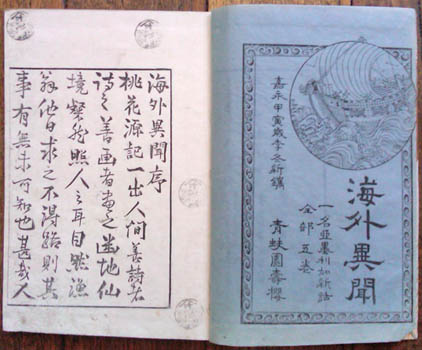 海外異聞
一名亞墨利加新話
全部五巻
青蚨園壽
嘉永甲寅歳季冬新鐫
海外異聞序
桃花源記一出人間善詩者
詩之善画者畫之幽地仙
境粲然照人之耳目然漁
翁他日求之不得路則其
事有無未可知也甚哉人